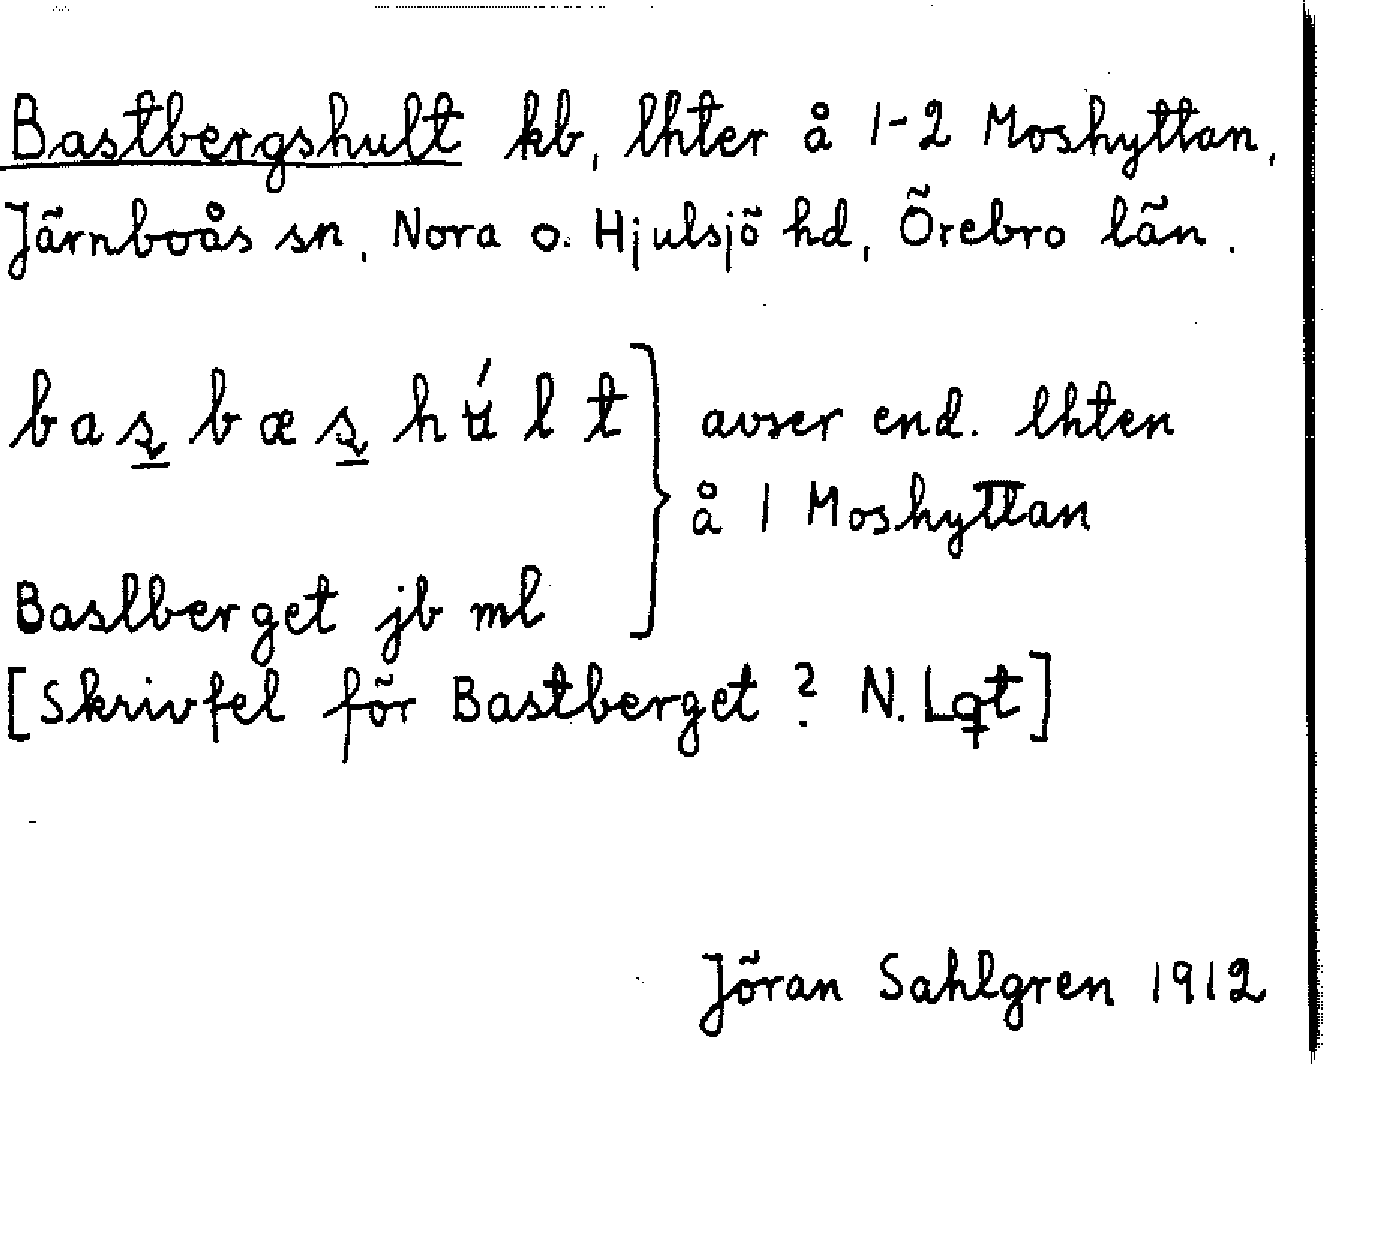 Bastbergshult kb, lhter å 1-2 Moshyttan,
Järnboås sn, Nora o. Hjulsjö hd, Örebro län.
basbæshúlt } avser end. lhten
å 1 Moshyttan
Baslberget jb ml
[Skrivfel för Bastberget? N. Lqt]
Jöran Sahlgren 1912